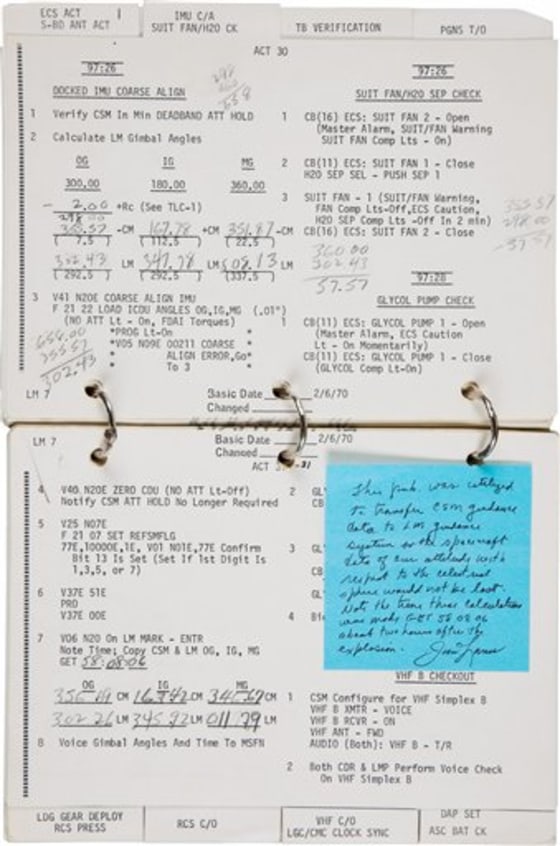 ECS ACT
S-BD ANT ACT
IMU C/A
SUIT FAN/H2O CK
TB VERIFICATION
PGNS T/O
ACT 30
97:26
DOCKED IMU COARSE ALIGN
1 Verify CSM In Min DEADBAND ATT HOLD
2 Calculate LM Gimbal Angles
OG IG MG
300.00 180.00 360.00
- 2.00 +Rc (See TLC-1)
298.00
355.57 -CM 167.78 +CM 351.87 -CM
( 7.5 ) (112.5 ) ( 22.5 )
302.43 LM 347.78 LM 508.13 LM
(292.5 ) (292.5 ) (337.5 )
3 V41 N20E COARSE ALIGN IMU
F 21 22 LOAD ICDU ANGLES OG,IG,MG (.01°)
(NO ATT Lt - On, FDAI Torques)
*PROG Lt-On *
*V05 N09E 00211 COARSE *
* ALIGN ERROR,Go*
* To 3 *
658.00
355.57
302.43
97:26
SUIT FAN/H2O SEP CHECK
1 CB(16) ECS: SUIT FAN 2 - Open
(Master Alarm, SUIT/FAN Warning
SUIT FAN Comp Lts - On)
2 CB(11) ECS: SUIT FAN 1 - Close
H2O SEP SEL - PUSH SEP 1
3 SUIT FAN - 1 (SUIT/FAN Warning,
FAN Comp Lts-Off,ECS Caution,
H2O SEP Comp Lts -Off In 2 min)
CB(16) ECS: SUIT FAN 2 - Close
355.57
298.00
-57.57
360.00
302.43
57.57
97:28
GLYCOL PUMP CHECK
1 CB(11) ECS: GLYCOL PUMP 1 - Open
(Master Alarm, ECS Caution
Lt - On Momentarily)
CB(11) ECS: GLYCOL PUMP 1 - Close
(GLYCOL Comp Lt-On)
LM 7
Basic Date 2/6/70
Changed
LM 7
Basic Date 2/6/70
Changed
ACT
4 V40 N20E ZERO CDU (NO ATT Lt-Off)
Notify CSM ATT HOLD No Longer Required
5 V25 N07E
F 21 07 SET REFSMFLG
77E,10000E,1E, V01 N01E,77E Confirm
Bit 13 Is Set (Set If 1st Digit Is
1,3,5, or 7)
6 V37E 51E
PRO
V37E 00E
7 V06 N20 On LM MARK - ENTR
Note Time; Copy CSM & LM OG, IG, MG
GET 58:08:06
OG IG MG
CM CM CM
302 26 LM LM 011 79 LM
8 Voice Gimbal Angles And Time To MSFN
2 GL
CB
3 GL
CB
GL
4
This pub. was utilized
to transfer CSM guidance
data to LM guidance
system so the spacecraft
data of our attitude with
respect to the celestial
sphere would not be lost.
Note the time these calculations
was made GET 58 08 06
about two hours after the
explosion.
VHF B CHECKOUT
1 CSM Configure for VHF Simplex B
VHF B XMTR - VOICE
VHF B RCVR - ON
VHF ANT - FWD
AUDIO (Both): VHF B - T/R
2 Both CDR & LMP Perform Voice Check
On VHF Simplex B
LDG GEAR DEPLOY
RCS PRESS
RCS C/O
VHF C/O
LGC/CMC CLOCK SYNC
DAP SET
ASC BAT CK